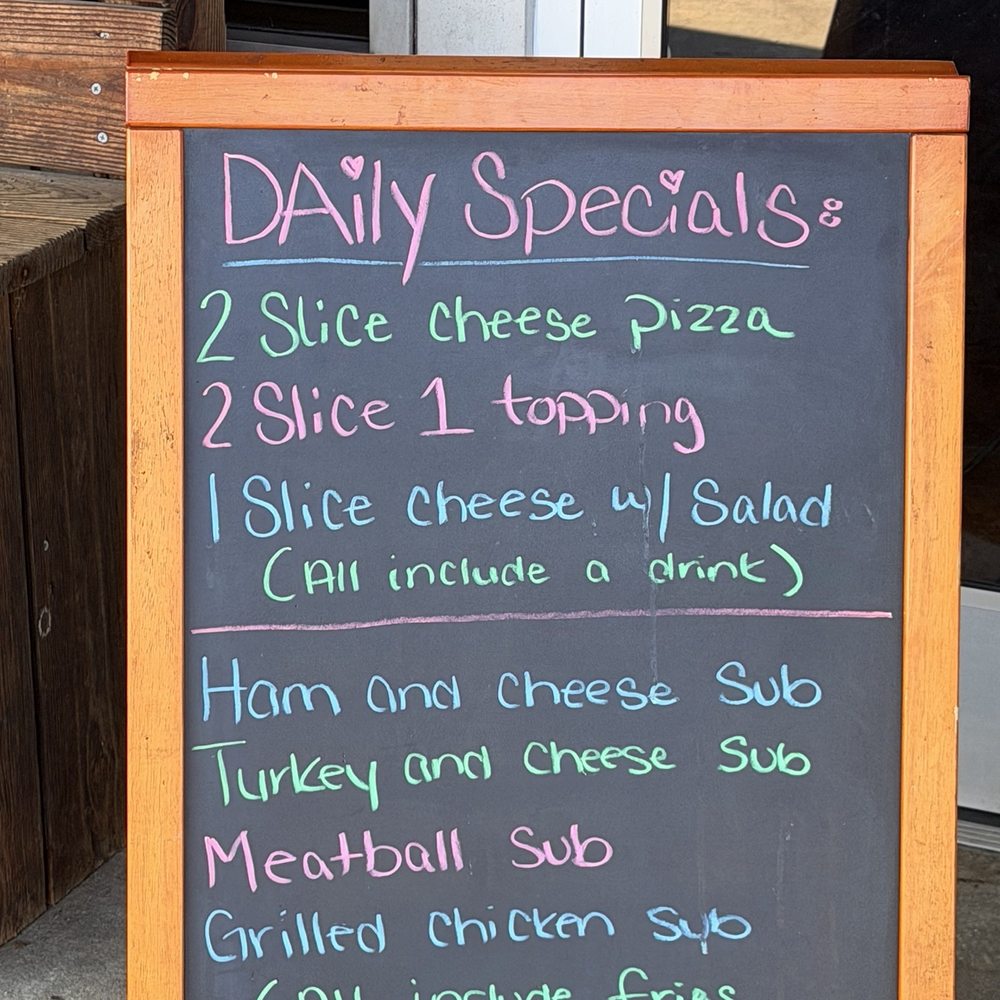 DAily Specials:
2 Slice cheese pizza
2 Slice 1 topping
1 Slice cheese w/ Salad
(All include a drink)
Ham and cheese Sub
Turkey and cheese Sub
Meatball Sub
Grilled chicken Sub
(All include fries